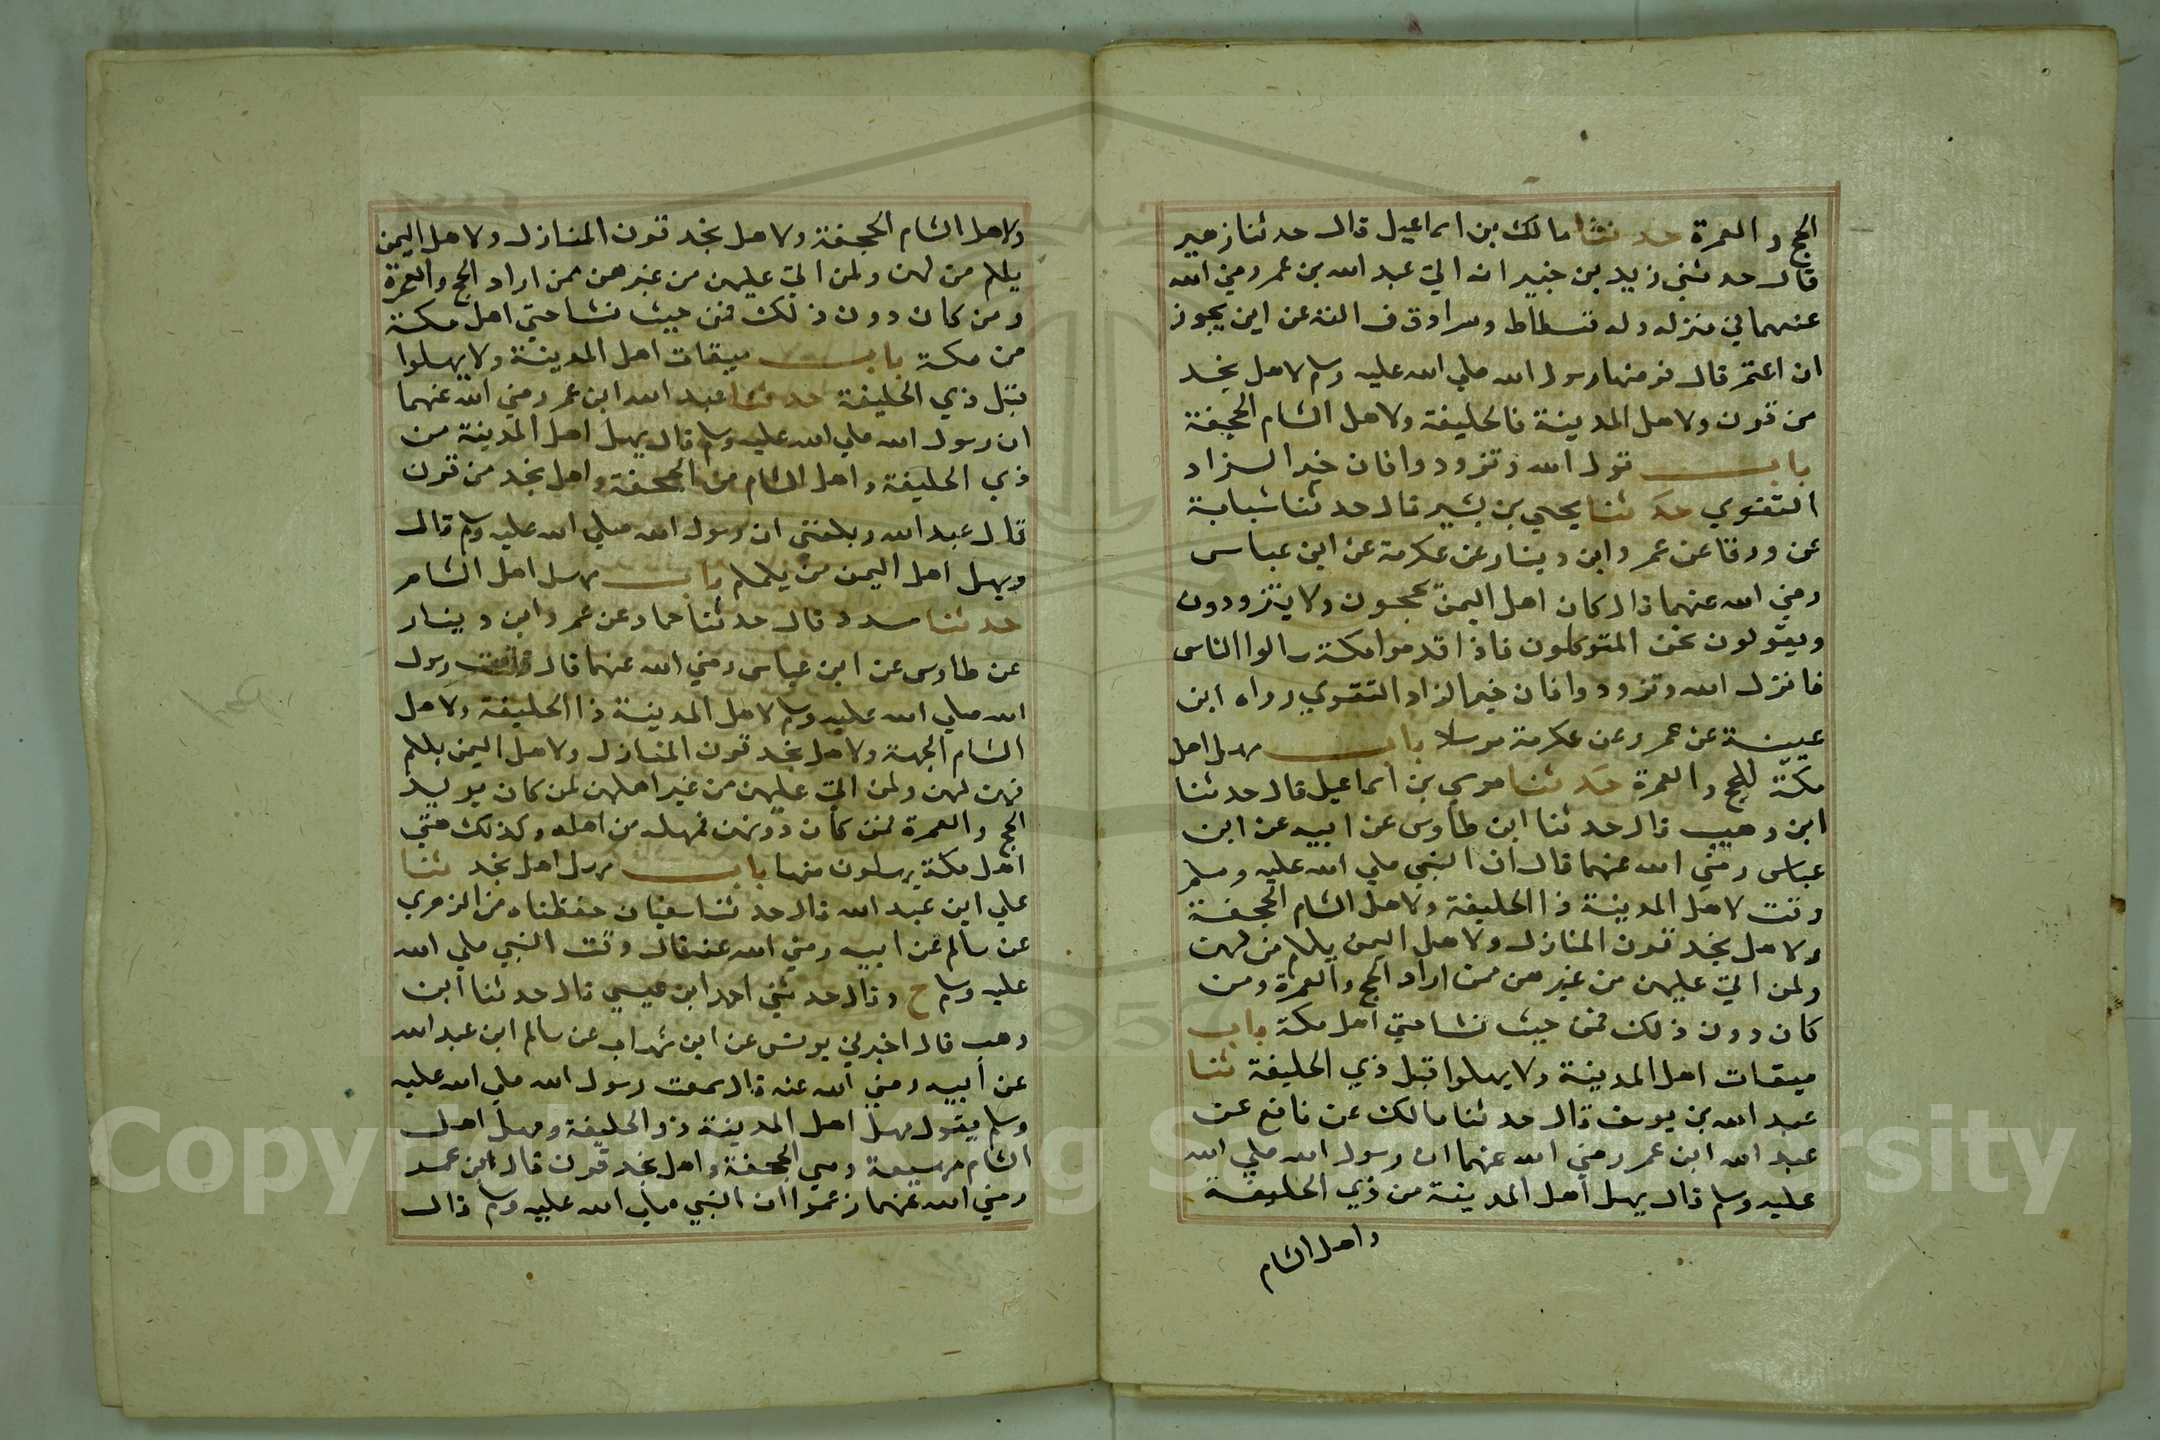 الحج و العمرة حدثنا مالك بن اسماعيل قال حدثنا زهير
قال حدثني زيد بن جبير انه اتي عبد الله بن عمر رضي الله
عنهما في منزله وله فسطاط وسرادق فسالته عن اين يجوز
ان اعتمر قال فرضها رسول الله صلي الله عليه وسلم لاهل نجد
من قرن ولاهل المدينة فالحليفة ولاهل الشام الجحفة
باب قول الله وتزودوا فان خير الزاد
التقوي حدثنا يحيي بن بشير قال حدثنا شبابة
عن ورقا عن عمرو ابن دينار عن عكرمة عن ابن عباس
رضي الله عنهما قال كان اهل اليمن يحجون ولا يتزودون
ويقولون نحن المتوكلون فاذا قدموا مكة سالوا الناس
فانزل الله وتزودوا فان خير الزاد التقوي رواه ابن
عيينة عن عمرو عن عكرمة مرسلا باب مهل اهل
مكة للحج و العمرة حدثنا موسي بن اسماعيل قال حدثنا
ابن وهيب قال حدثنا ابن طاوس عن ابيه عن ابن
عباس رضي الله عنهما قال ان النبي صلي الله عليه وسلم
وقت لاهل المدينة ذا الحليفة ولاهل الشام الجحفة
ولاهل نجد قرن المنازل ولاهل اليمن يلملم من لهن
ولمن اتي عليهن من غيرهن ممن اراد الحج والعمرة ومن
كان دون ذلك فمن حيث نشا حتي اهل مكة باب
ميقات اهل المدينة ولا يهلوا قبل ذي الحليفة ثنا
عبد الله بن يوسف قال حدثنا مالك عن نافع عن
عبد الله ابن عمر رضي الله عنهما ان رسول الله صلي الله
عليه وسلم قال يهل اهل المدينة من ذي الحليفة
واهل الشام
ولاهل الشام الجحفة ولاهل نجد قرن المنازل ولاهل اليمن
يلملم من لهن ولمن اتي عليهن من غيرهن ممن اراد الحج والعمرة
ومن كان دون ذلك فمن حيث نشا حتي اهل مكة
من مكة باب ميقات اهل المدينة ولا يهلوا
قبل ذي الحليفة حدثنا عبد الله ابن عمر رضي الله عنهما
ان رسول الله صلي الله عليه وسلم قال يهل اهل المدينة من
ذي الحليفة واهل الشام من الجحفة واهل نجد من قرن
قال عبد الله وبلغني ان رسول الله صلي الله عليه وسلم قال
ويهل اهل اليمن من يلملم باب مهل اهل الشام
حدثنا مسدد قال حدثنا حماد عن عمرو ابن دينار
عن طاوس عن ابن عباس رضي الله عنهما قال رسول
الله صلي الله عليه وسلم لاهل المدينة ذا الحليفة ولاهل
الشام الجهة ولاهل نجد قرن المنازل ولاهل اليمن يللم
فهن لهن ولمن اتي عليهن من غير اهلهن لمن كان يريد
الحج و العمرة فمن كان دونهن فمهله من اهله وكذلك حتي
اهل مكة يهلون منها باب مهل اهل نجد ثنا
علي ابن عبد الله قال حدثنا سفيان حفظناه من الزهري
عن سالم عن ابيه رضي الله عنه قال وقت النبي صلي الله
عليه وسلم ح وقال حدثني احمد ابن عيسي قال حدثنا ابن
وهب قال اخبرني يونس عن ابن شهاب عن سالم ابن عبد الله
عن ابيه رضي الله عنه قال سمعت رسول الله صلي الله عليه
وسلم يقول مهل اهل المدينة ذو الحليفة ومهل اهل
الشام مهيعة وهي الجحفة واهل نجد قرن قال ابن عمر
رضي الله عنهما زعموا ان النبي صلي الله عليه وسلم قال
Copyright © King Saud University
1957